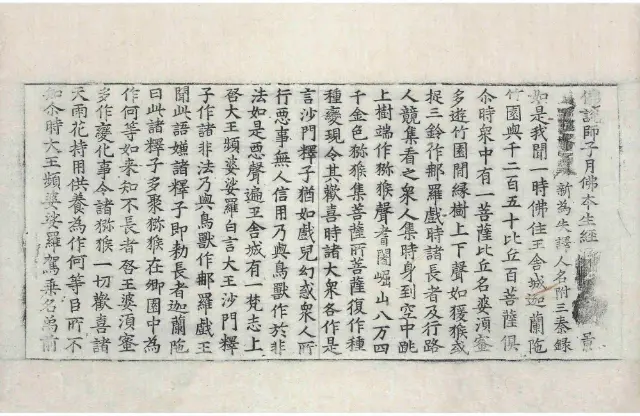 佛說師子月佛本生經 景
新為失譯人名附三秦錄
如是我聞一時佛住王舍城迦蘭陁
竹園與千二百五十比丘百菩薩俱
尒時衆中有一菩薩比丘名婆湏蜜
多遊竹園間縁樹上下聲如獼猴或
捉三鈴作那羅戲時諸長者及行路
人競集看之衆人集時身到空中跳
上樹端作猕猴聲耆闍崛山八万四
千金色猕猴集菩薩所菩薩復作種
種變現令其歡喜時諸大衆各作是
言沙門釋子猶如戲兒幻惑衆人所
行惡事無人信用乃與鳥獸作於非
法如是惡聲遍王舍城有一梵志上
啓大王頻婆娑羅白言大王沙門釋
子作諸非法乃與鳥獸作那羅戲王
聞此語嫌諸釋子即勅長者迦蘭陁
曰此諸釋子多聚猕猴在卿園中為
作何等如来知不長者啓王婆湏蜜
多作變化事令諸猕猴一切歡喜諸
天雨花持用供養為作何等臣所不
知尒時大王頻婆娑羅駕乗名象前